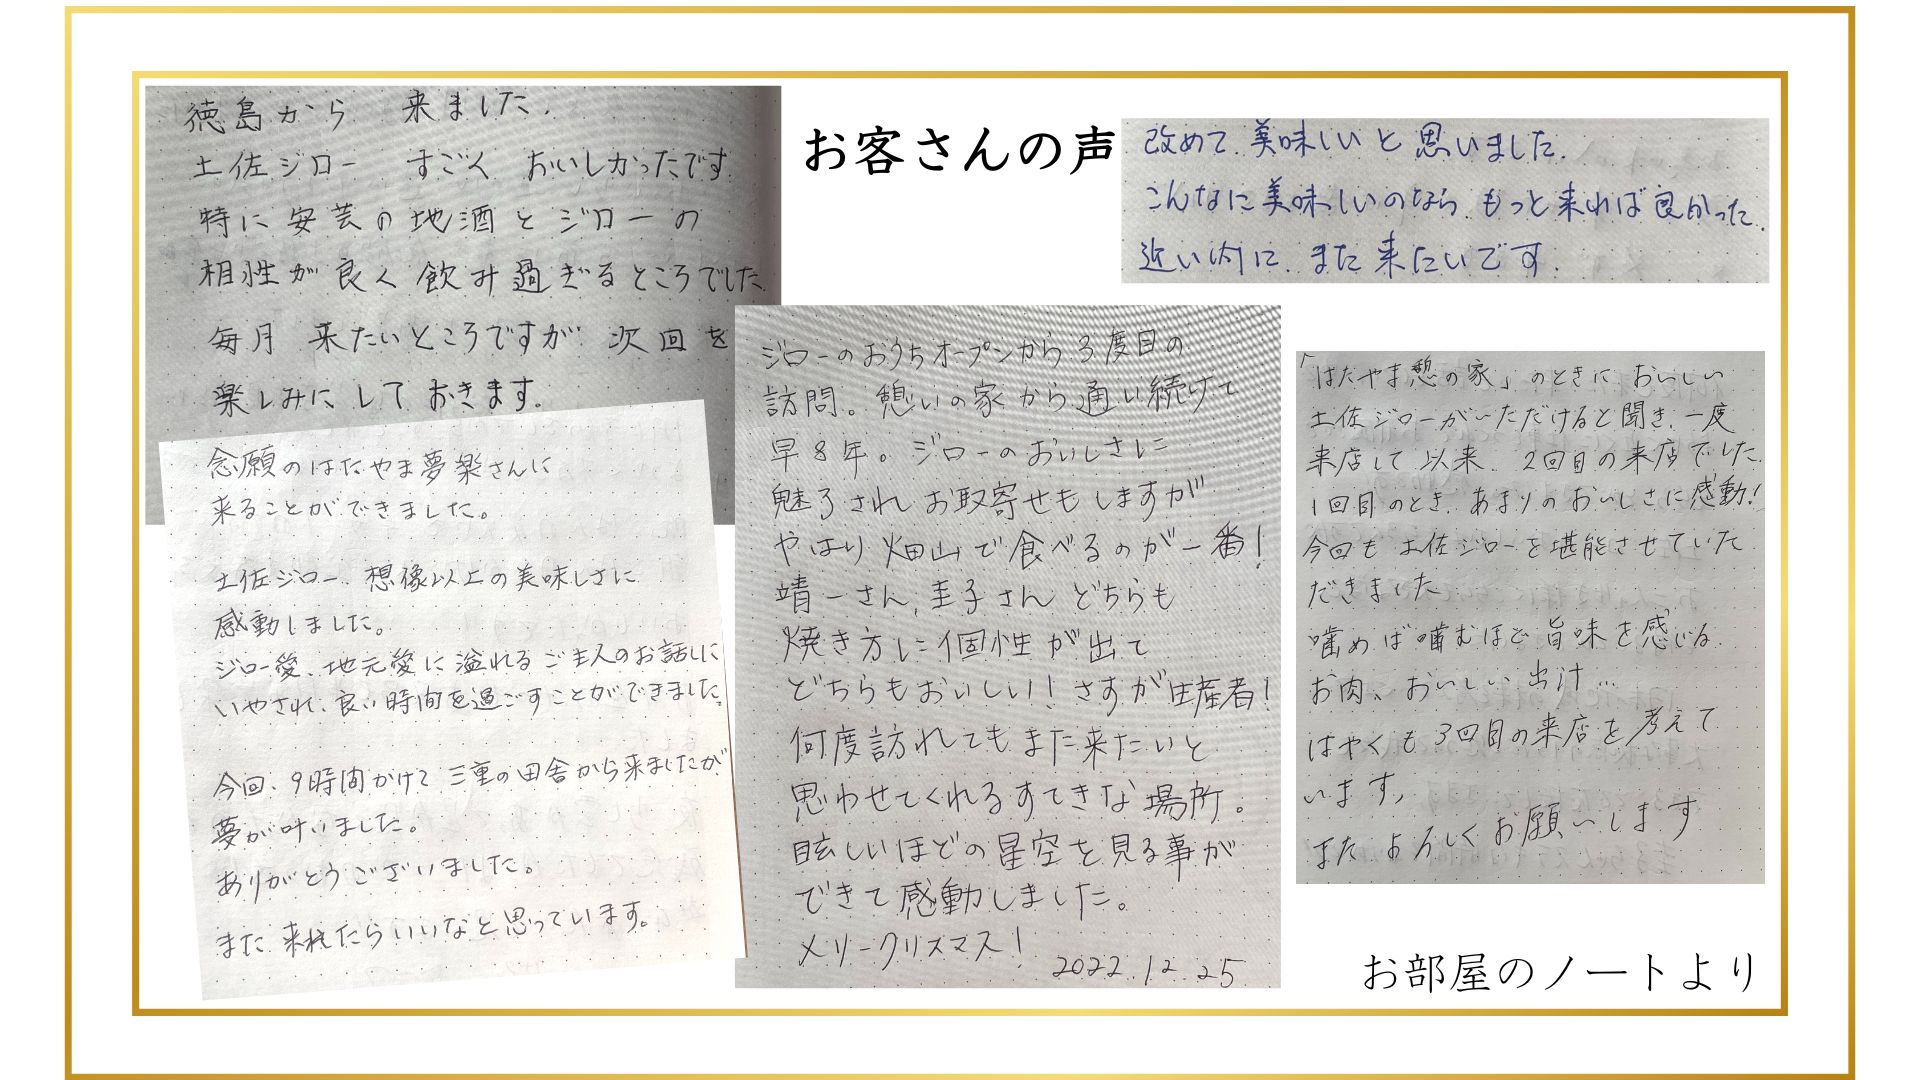 徳島から 来ました.
土佐ジロー すごく おいしかったです.
特に 安芸の地酒とジローの
相性が良く飲み過ぎるところでした.
毎月 来たいところですが 次回を
楽しみに して おきます.
念願のはたやま夢楽さんに
来ることができました。
土佐ジロー、想像以上の美味しさに
感動しました。
ジロー愛、地元愛に溢れるご主人のお話しに
いやされ、良い時間を過ごすことができました。
今回、9時間かけて三重の田舎から来ましたが
夢が叶いました。
ありがとうございました。
また 来れたらいいなと思っています。
お客さんの声
改めて、美味しいと思いました.
こんなに美味しいのなら、もっと来れば良かった.
近い内に、また来たいです.
ジローのおうちオープンから3度目の
訪問。憩いの家から通い続けて
早8年。ジローのおいしさに
魅了されお取寄せもしますが
やはり畑山で食べるのが一番!
靖一さん,圭子さん どちらも
焼き方に個性が出て
どちらもおいしい!さすが生産者!
何度訪れてもまた来たいと
思わせてくれるすてきな場所。
眩しいほどの星空を見る事が
できて感動しました。
メリークリスマス!
2022.12.25
「はたやま憩の家」のときに おいしい
土佐ジローがいただけると聞き、一度
来店して以来、2回目の来店でした.
1回目のとき、あまりのおいしさに感動!
今回も土佐ジローを堪能させていた
だきました
噛めば噛むほど旨味を感じる
お肉、おいしい出汁…
はやくも3回目の来店を考えて
います,
またよろしくお願いします
お部屋のノートより